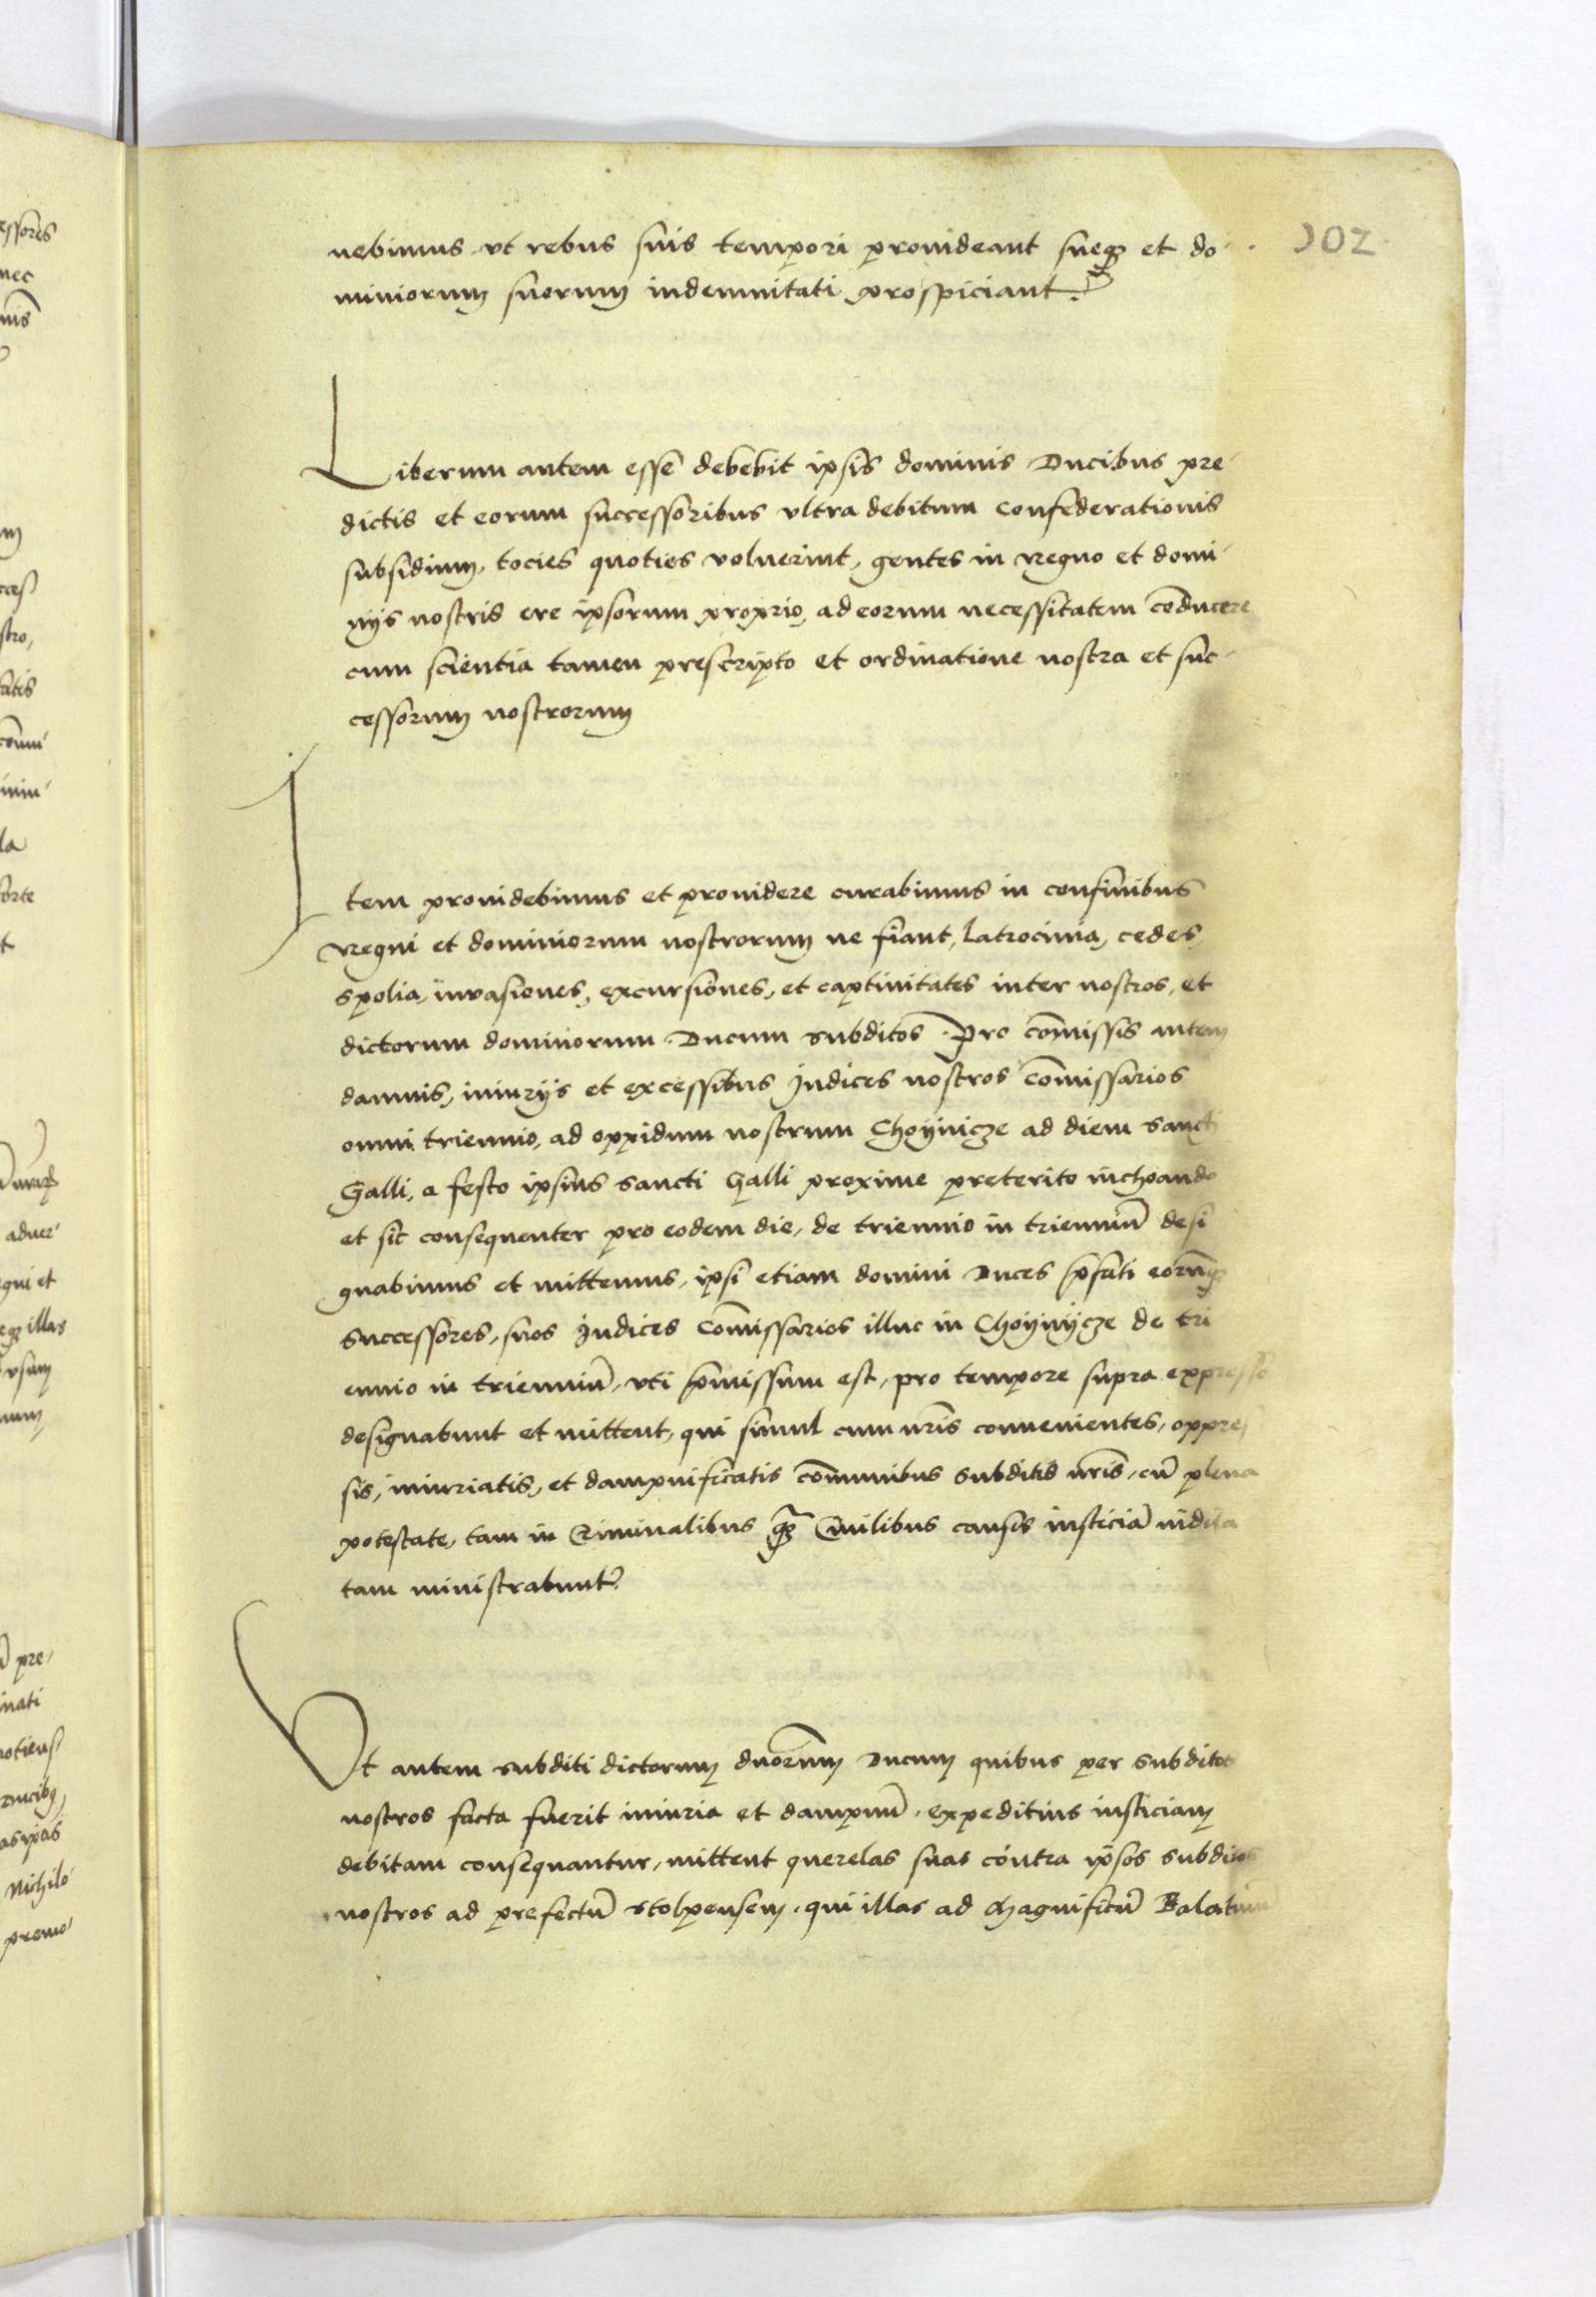 102
nebimus vt rebus suis tempori prouideant sueq₃ et do-
miniorum suorum indemnitati prospiciant.
Liberum autem esse debebit ipsis dominis Ducibus pre-
dictis et eorum successoribus vltra debitum confederationis
subsidium, tocies quoties voluerint, gentes in Regno et domi-
nijs nostris ere ipsorum proprio, ad eorum necessitatem cōducere
cum scientia tamen prescripto et ordinatione nostra et suc-
cessorum nostrorum
Item prouidebimus et prouidere curabimus in confinibus
Regni et dominiorum nostrorum ne fiant, latrocinia, cedes,
spolia, inuasiones, excursiones, et captiuitates inter nostros, et
dictorum dominorum Ducum subditos. Pro cōmissis autem
damnis, iniurijs et excessibus Judices nostros Cōmissarios
omni triennio, ad oppidum nostrum Choynicze ad diem sancti
Galli, a festo ipsius sancti Galli proxime preterito inchoando
et sic consequenter pro eodem die, de triennio in trienniū desi
gnabimus et mittemus, ipsi etiam domini Duces p̄fati eorūq₃
successores, suos Judices Cōmissarios illuc in Choynycze de tri
ennio in trienniū, vti p̄missum est, pro tempore supra expresso
designabunt et mittent, qui simul cum nr̄is conuenientes, oppres
sis, iniuriatis, et dampnificatis cōmunibus subditis nr̄is, cū plena
potestate, tam in Criminalibus q̄₃ Ciuilibus causis iusticiā indila
tam ministrabunt.
Vt autem subditi dictorum duōrum Ducum quibus per subditos
nostros facta fuerit iniuria et dampnū, expeditius iusticiam
debitam consequantur, mittent querelas suas contra ipsos subditos
nostros ad prefectū Stolpensem, qui illas ad Magnificū Palatinū